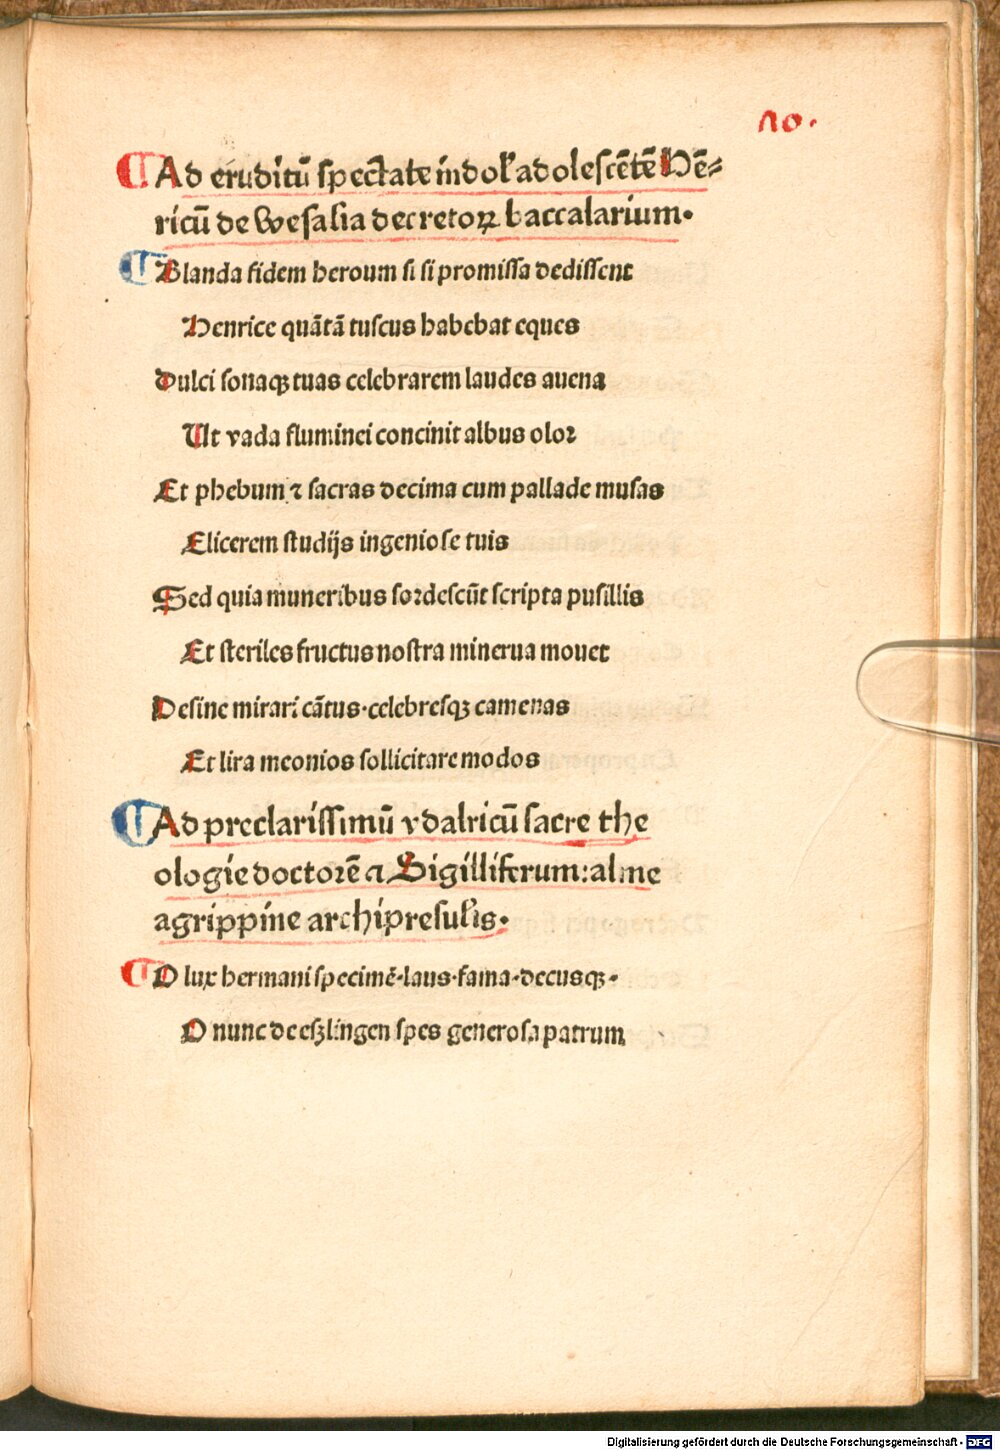 10.
¶ Ad eruditū spectate indol' adolescētē Hē⸗
ricū de Wesalia decretoꝝ baccalarium.
¶ Blanda fidem heroum si si promissa dedissent
Henrice quātā tuscus habebat eques
Dulci sonaqꝫ tuas celebrarem laudes auena
Ut vada fluminei concinit albus olor
Et phebum ⁊ sacras decima cum pallade musas
Elicerem studijs ingeniose tuis
Sed quia muneribus sordescūt scripta pusillis
Et steriles fructus nostra minerua mouet
Desine mirari cātus·celebresqꝫ camenas
Et lira meonios sollicitare modos
¶ Ad preclarissimū vdalricū sacre the
ologie doctorē ⁊ Sigilliferum: alme
agrippine archipresul'is.
¶ O lux hermani specimē·laus·fama·decusqꝫ·
O nunc de eszlingen spes generosa patrum
Digitalisierung gefördert durch die Deutsche Forschungsgemeinschaft - DFG